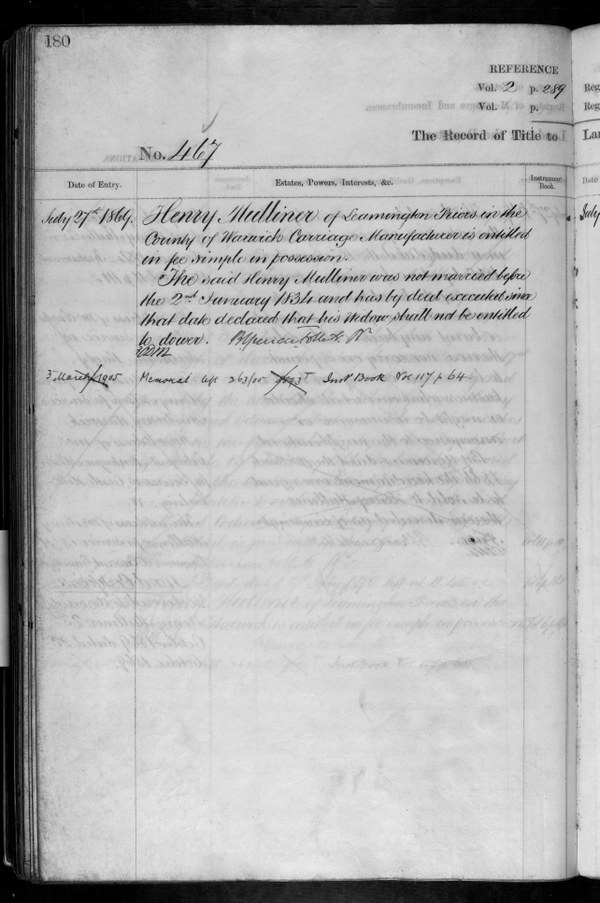 180
REFERENCE
Vol. 2 p. 289
Vol. p.
The Record of Title to
No. 467
Date of Entry. Estates, Powers, Interests, &c. Instrument Book.
July 27th 1869. Henry Mulliner of Leamington Priors in the
County of Warwick Carriage Manufacturer is entitled
in fee simple in possession.
The said Henry Mulliner was not married before
the 2nd January 1834 and has by deed executed since
that date declared that his widow shall not be entitled
to dower.
3 March 1905 Memorial 263/05 Inst Book Vol 117 p 64.
Reg
Reg
La
Date
July